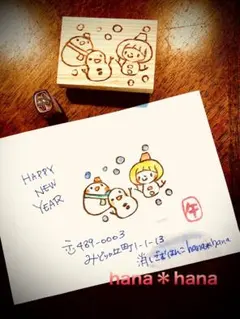 HAPPY
NEW
YEAR
午
〒489-0003
1-1-13
消しゴムはんこ hana*hana
hana*hana